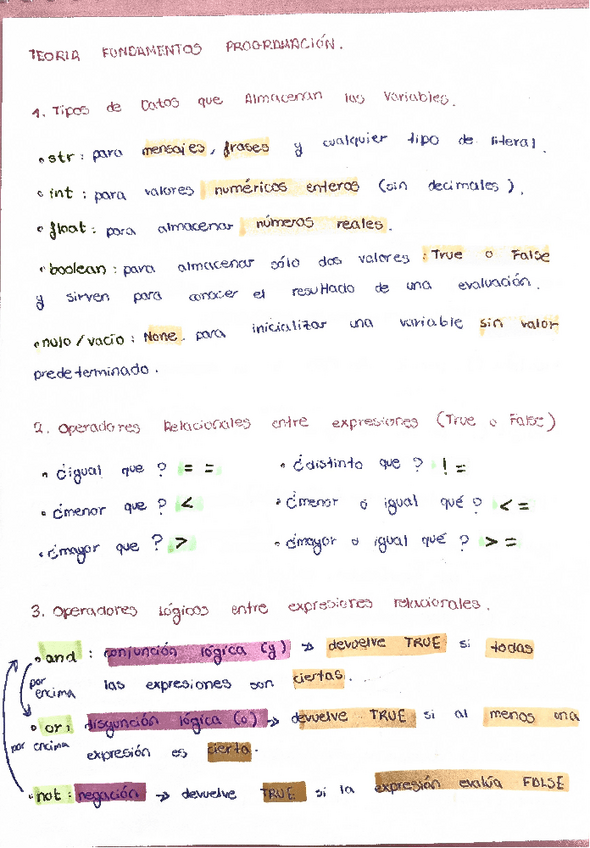 TEORIA FUNDAMENTOS PROGRAMACIÓN.
1. Tipos de Datos que Almacenan las Variables.
• str: para mensajes, frases y cualquier tipo de literal.
• int: para valores numéricos enteros (sin decimales).
• float: para almacenar números reales.
• boolean: para almacenar sólo dos valores: True o False
y sirven para conocer el resultado de una evaluación.
• nulo/vacío: None. para inicializar una variable sin valor
predeterminado.
2. Operadores Relacionales entre expresiones (True o False)
• ¿igual que? == • ¿distinto que? !=
• ¿menor que? < • ¿menor o igual qué? <=
• ¿mayor que? > • ¿mayor o igual qué? >=
3. Operadores lógicos entre expresiones relacionales.
• and: conjunción lógica (y) → devuelve TRUE si todas
por encima las expresiones son ciertas.
• or: disyunción lógica (o) → devuelve TRUE si al menos una
por encima expresión es cierta.
• not: negación → devuelve TRUE si la expresión evalúa FALSE